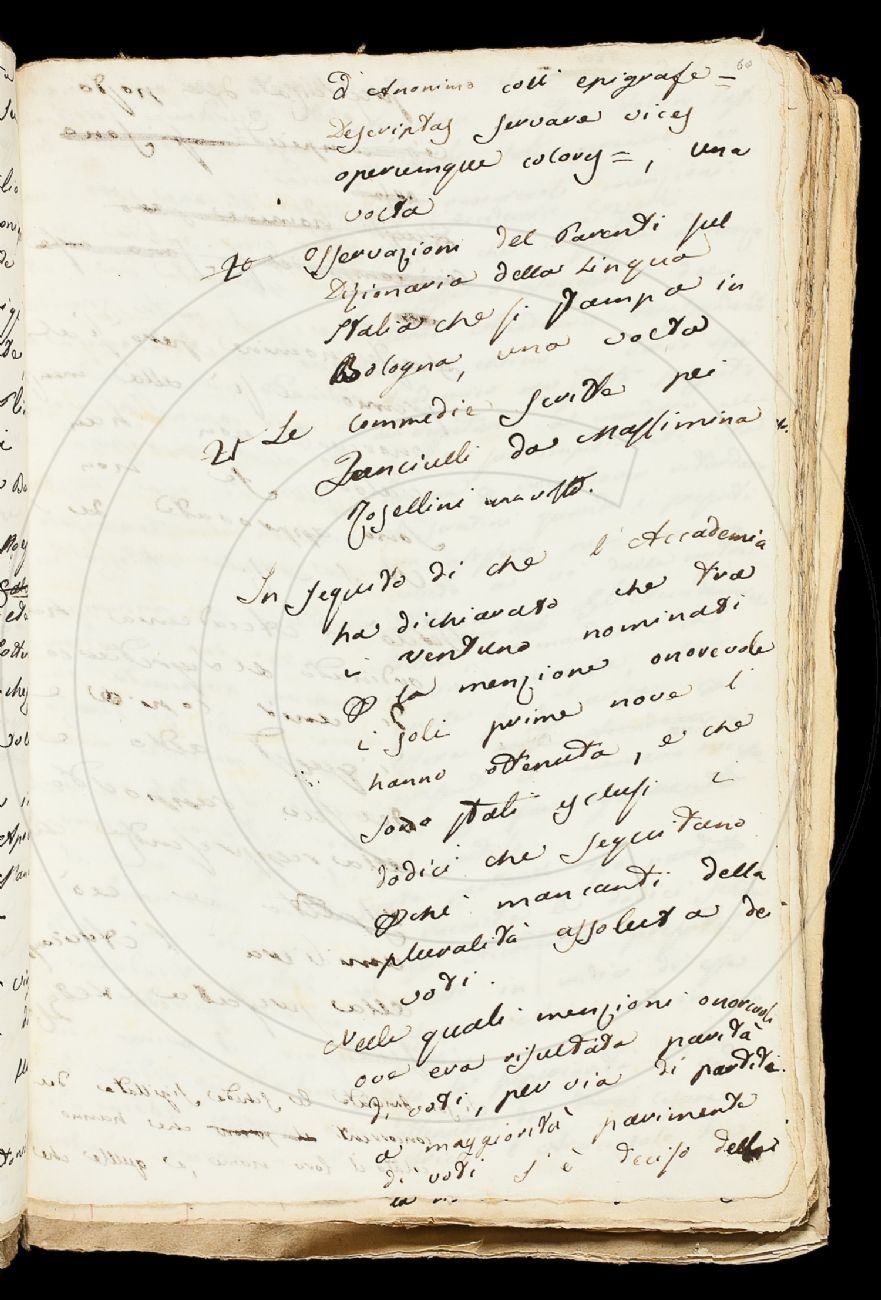 60
d'Anonimo coll epigrafe =
Descriptas servare vices
operumque colores =, una
volta
20 Osservazioni del Parenti sul
Dizionario della Lingua
Italia che si stampa in
Bologna, una volta
21 Le commedie scritte pei
Fanciulli da Massimina
Rosellini una volta.
In seguito di che l'Accademia
ha dichiarato che tra
i ventuno nominati
la menzione onorevole
i soli prime nove l
hanno ottenuta, e che
sono stati esclusi i
dodici che seguitano
perché mancanti della
pluralità assoluta dei
voti.
Nelle quali menzioni onorevoli
ove era risultata parità
di voti, per via di partito
a maggiorità parimente
di voti s'è deciso della